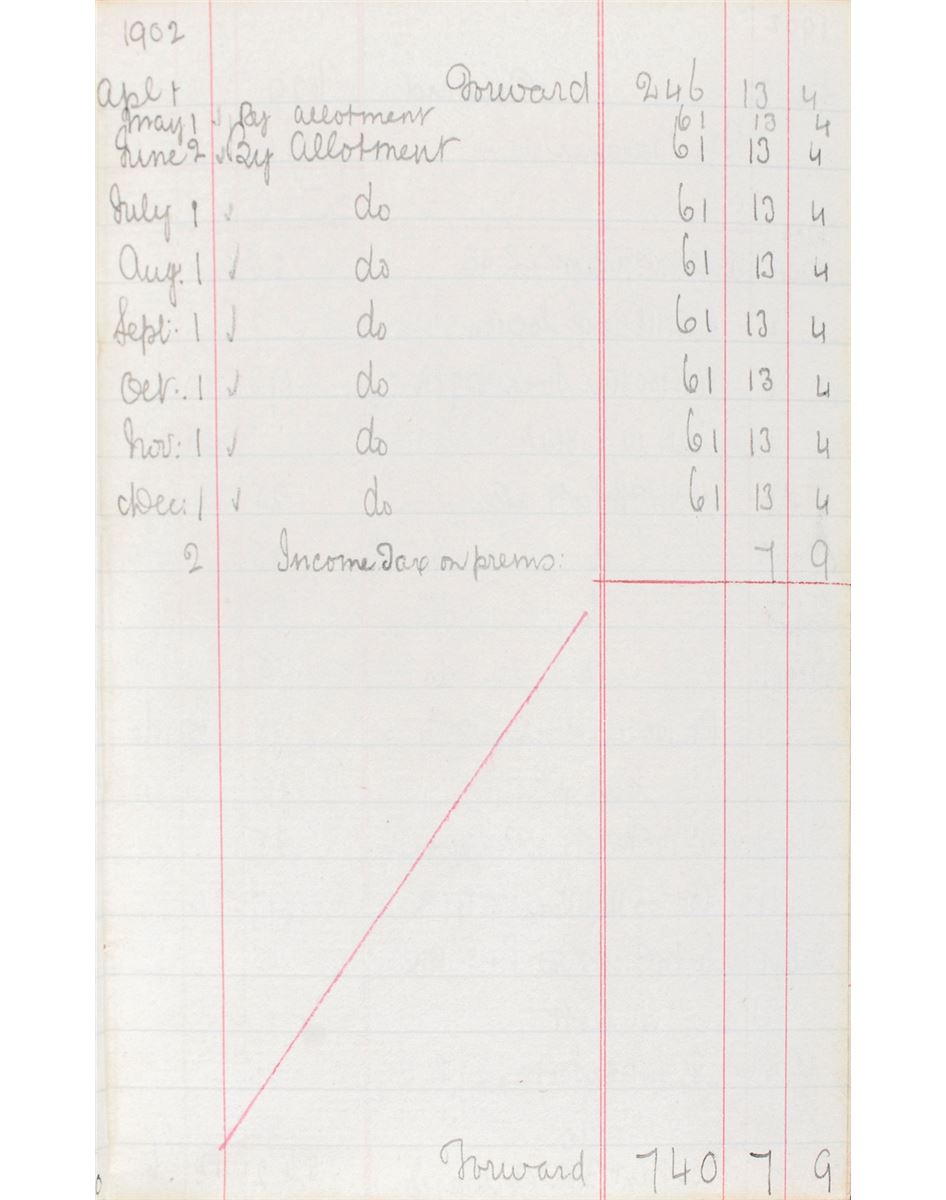 1902
Apl 1 Forward 246 13 4
May 1 By allotment 61 13 4
June 2 By Allotment 61 13 4
July 1 do 61 13 4
Aug. 1 do 61 13 4
Sept: 1 do 61 13 4
Oct. 1 do 61 13 4
Nov: 1 do 61 13 4
Dec: 1 do 61 13 4
2 Income Tax on prems: 7 9
Forward 740 7 9